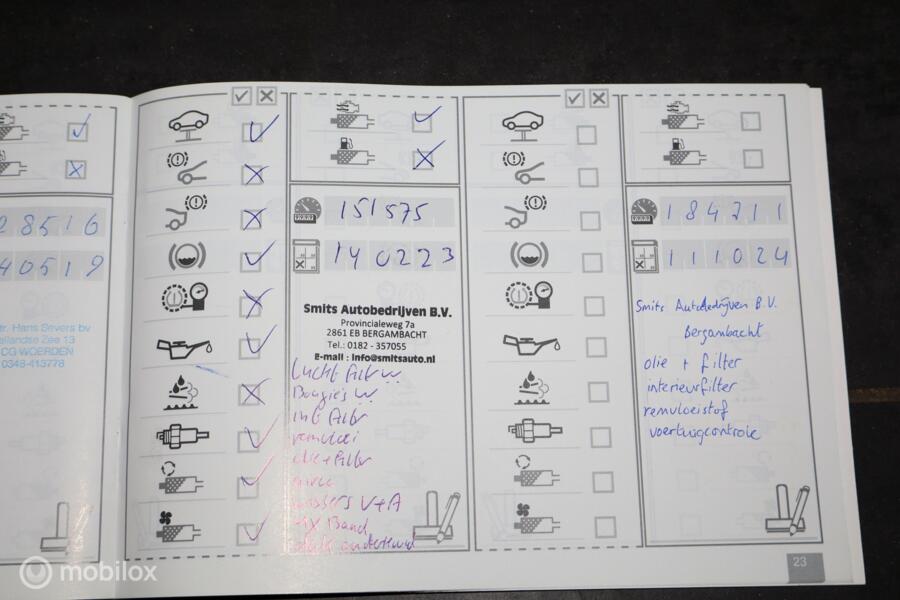 28516
40519
tr. Hans Severs bv
CG WOERDEN
0348-413778
151575
140223
Smits Autobedrijven B.V.
Provincialeweg 7a
2861 EB BERGAMBACHT
Tel.: 0182 - 357055
E-mail : info@smitsauto.nl
Lucht filter
Bougie's
int filter
remvloei
olie + filter
wissers V+A
4x Band
184211
111024
Smits Autobedrijven B.V.
Bergambacht
olie + filter
interieurfilter
remvloeistof
voertuigcontrole
23
mobilox